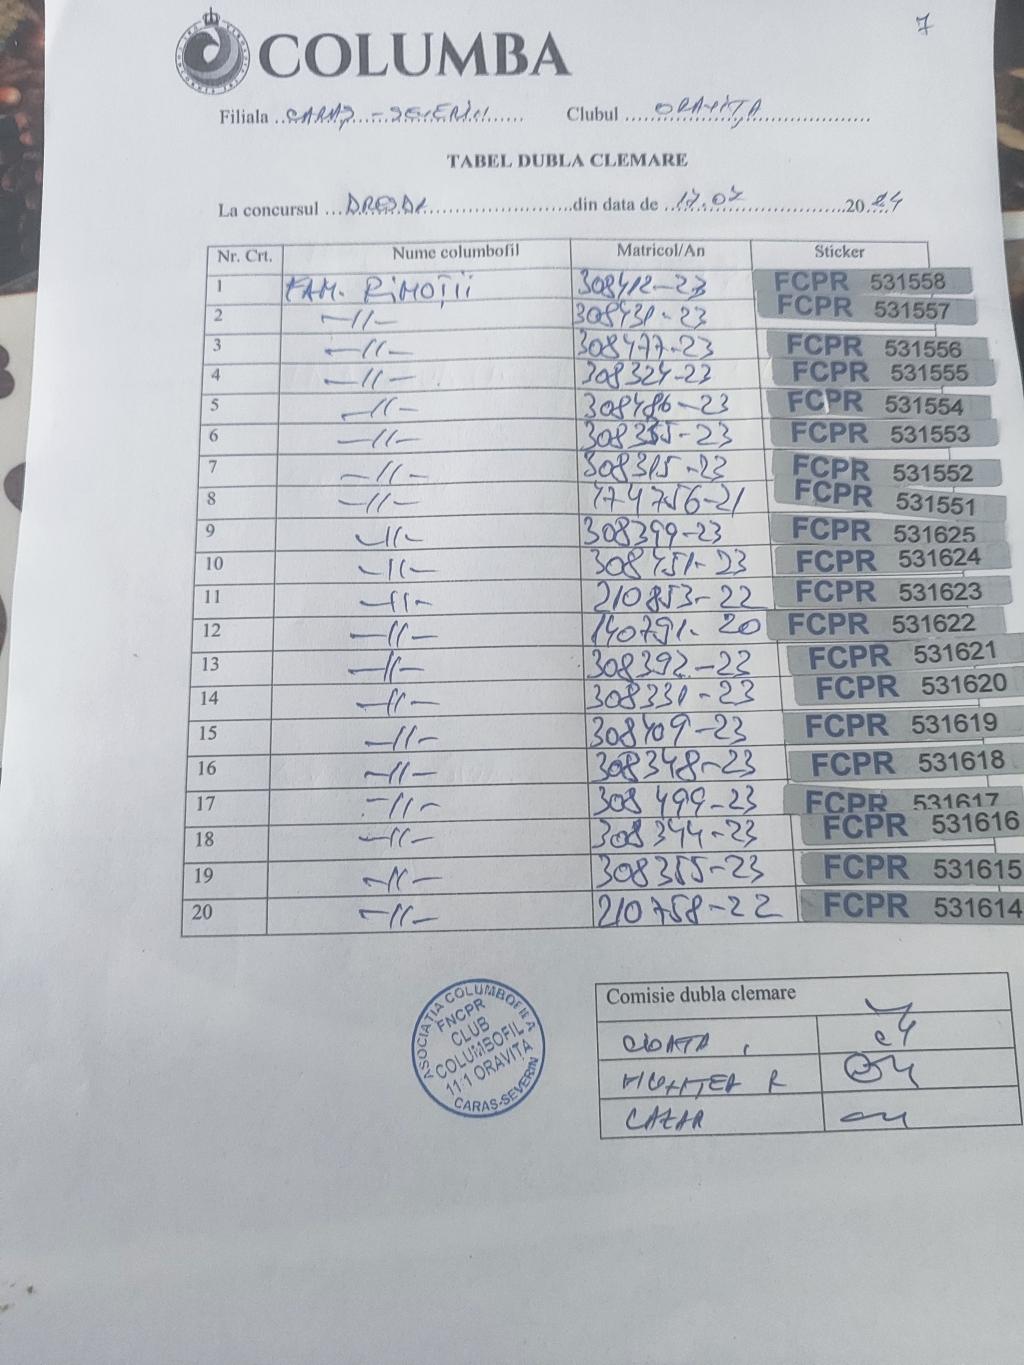 7
COLUMBA
Filiala ..CARAȘ - SEVERIN...... Clubul ....ORAVIȚA..................
TABEL DUBLA CLEMARE
La concursul ...DRESDA..........................din data de ..17.07........................2024
Nr. Crt. Nume columbofil Matricol/An Sticker
1 FAM. RIMOȚII 308412-23 FCPR 531558
2 -//- 308431-23 FCPR 531557
3 -//- 308477-23 FCPR 531556
4 -//- 308324-23 FCPR 531555
5 -//- 308486-23 FCPR 531554
6 -//- FCPR 531553
7 -//- 308315-23 FCPR 531552
8 -//- FCPR 531551
9 -//- 308399-23 FCPR 531625
10 -//- 308451-23 FCPR 531624
11 -//- 210853-22 FCPR 531623
12 -//- 140791-20 FCPR 531622
13 -//- 308392-23 FCPR 531621
14 -//- 308331-23 FCPR 531620
15 -//- 308409-23 FCPR 531619
16 -//- 308348-23 FCPR 531618
17 -//- 308499-23 FCPR 531617
18 -//- 308344-23 FCPR 531616
19 -//- 308355-23 FCPR 531615
20 -//- 210758-22 FCPR 531614
ASOCIATIA COLUMBOFILA
FNCPR
CLUB
COLUMBOFIL
11-1 ORAVIȚA
CARAS-SEVERIN
Comisie dubla clemare
CAZAR